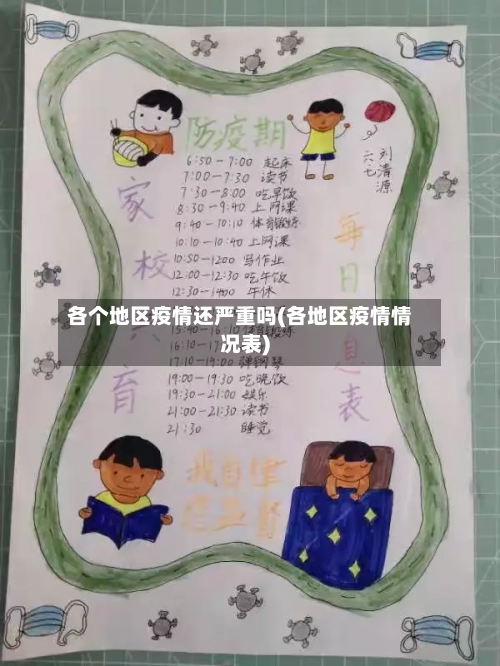 防疫期
刘清源
六七
家校
育
每日
息表
6:50-7:00 起床
7:00-7:30 读书
7:30-8:00 吃早饭
8:30-9:40 上网课
9:40-10:10 体育锻炼
10:10-10:40 上网课
10:50-1200 写作业
12:00-12:30 吃午饭
12:30-1400 午休
各个地区疫情还严重吗(各地区疫情情
况表)
15:40-16:10 体育锻炼
16:10-17
17:10-19:00 弹钢琴
19:00-19:30 吃晚饭
19:30-21:00 娱乐
21:00-21:30 读书
21:30 睡觉
我自律